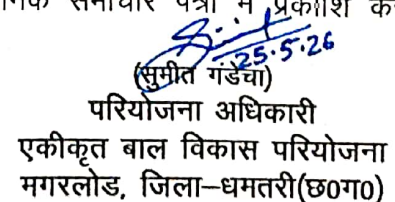 समाचार पत्रों में प्रकाशि
25.5.26
(सुमीत गंडेचा)
परियोजना अधिकारी
एकीकृत बाल विकास परियोजना
मगरलोड, जिला–धमतरी(छ0ग0)